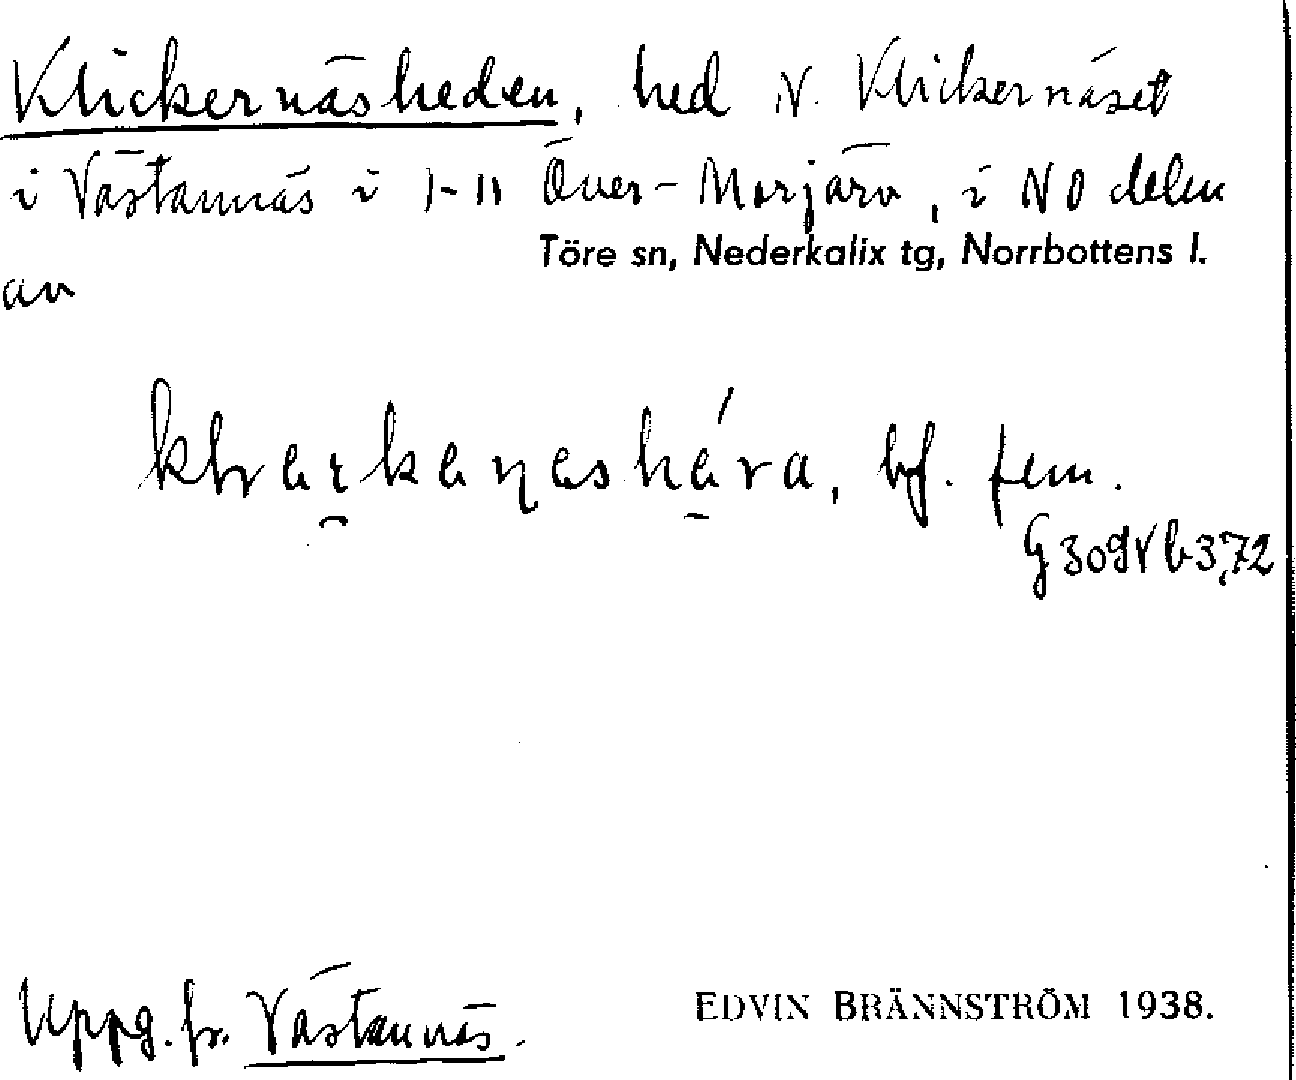 Klickernäsheden, hed N. Klickernäset
i Västannäs i 1-11 Över-Morjärv, i NO delen
Töre sn, Nederkalix tg, Norrbottens l.
av
bf. fem.
Uppg. fr. Västannäs.
EDVIN BRÄNNSTRÖM 1938.